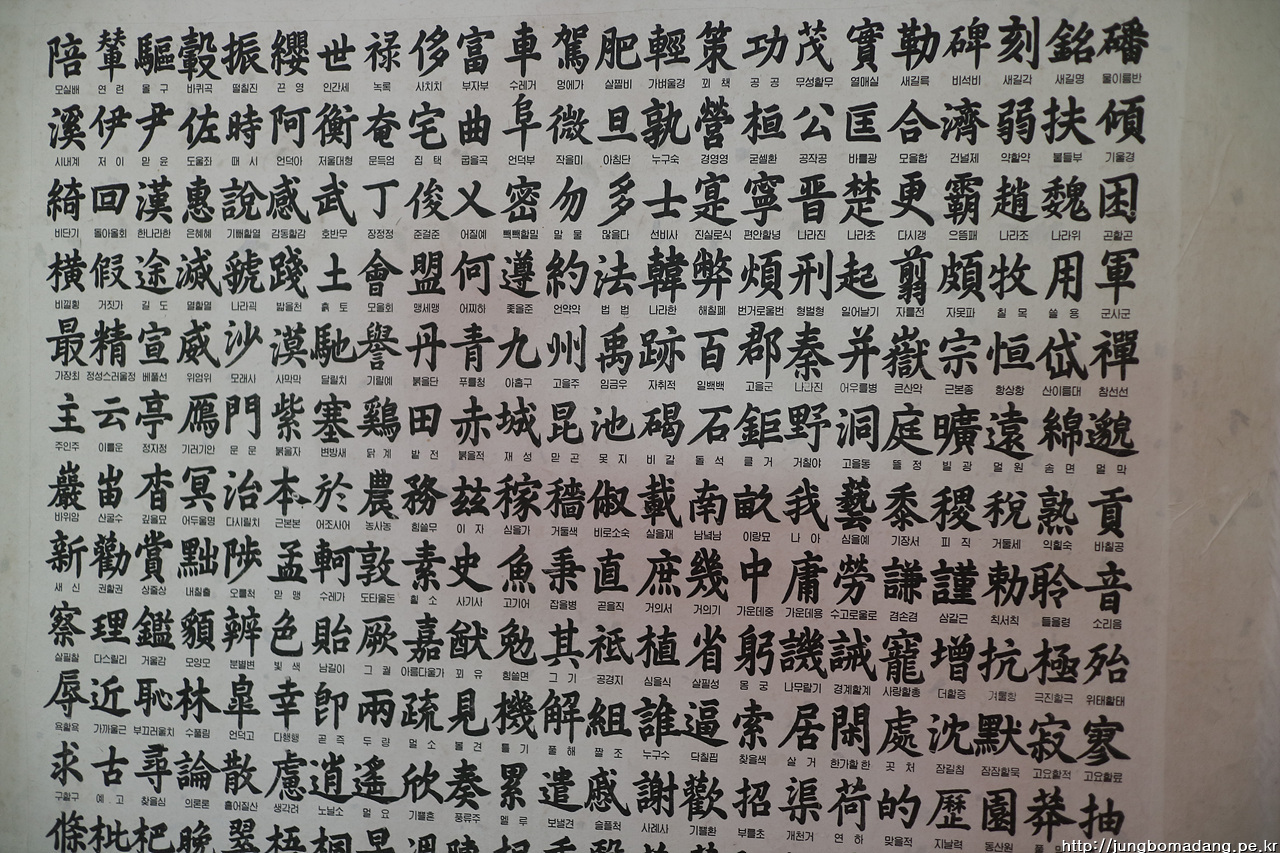 陪輦驅轂振纓世祿侈富車駕肥輕策功茂實勒碑刻銘磻
모실배 연련 몰구 바퀴곡 떨칠진 끈영 인간세 녹록 사치치 부자부 수레거 멍에가 살찔비 가벼울경 꾀책 공공 무성할무 열매실 새길륵 비석비 새길각 새길명 물이름반
溪伊尹佐時阿衡奄宅曲阜微旦孰營桓公匡合濟弱扶傾
시내계 저이 맏윤 도울좌 때시 언덕아 저울대형 문득엄 집택 굽을곡 언덕부 작을미 아침단 누구숙 경영영 굳셀환 공작공 바를광 모을합 건널제 약할약 붙들부 기울경
綺回漢惠說感武丁俊乂密勿多士寔寧晋楚更霸趙魏困
비단기 돌아올회 한나라한 은혜혜 기뻐할열 감동할감 호반무 장정정 준걸준 어질예 빽빽할밀 말물 많을다 선비사 진실로식 편안할녕 나라진 나라초 다시갱 으뜸패 나라조 나라위 곤할곤
橫假途滅虢踐土會盟何遵約法韓弊煩刑起翦頗牧用軍
비낄횡 거짓가 길도 멸할멸 나라괵 밟을천 흙토 모을회 맹세맹 어찌하 좇을준 언약약 법법 나라한 해칠폐 번거로울번 형벌형 일어날기 자를전 자못파 칠목 쓸용 군사군
最精宣威沙漠馳譽丹青九州禹跡百郡秦并嶽宗恒岱禪
가장최 정성스러울정 베풀선 위엄위 모래사 사막막 달릴치 기릴예 붉을단 푸를청 아홉구 고을주 임금우 자취적 일백백 고을군 나라진 어우를병 큰산악 근본종 항상항 산이름대 참선선
主云亭鴈門紫塞鷄田赤城昆池碣石鉅野洞庭曠遠綿邈
주인주 이를운 정자정 기러기안 문문 붉을자 변방새 닭계 밭전 붉을적 재성 맏곤 못지 비갈 돌석 클거 거칠야 고을동 뜰정 빌광 멀원 솜면 멀막
巖峀杳冥治本於農務玆稼穡俶載南畝我藝黍稷稅熟貢
바위암 산굴수 깊을묘 어두울명 다시릴치 근본본 어조사어 농사농 힘쓸무 이자 심을가 거둘색 비로소숙 실을재 남녘남 이랑묘 나아 심을예 기장서 피직 거둘세 익힐숙 바칠공
新勸賞黜陟孟軻敦素史魚秉直庶幾中庸勞謙謹勅聆音
새신 권할권 상줄상 내칠출 오를척 맏맹 수레가 도타울돈 흴소 사기사 고기어 잡을병 곧을직 거의서 거의기 가운데중 가운데용 수고로울로 겸손겸 삼갈근 칙서칙 들을령 소리음
察理鑑貌辨色貽厥嘉猷勉其祗植省躬譏誡寵增抗極殆
살필찰 다스릴리 거울감 모양모 분별변 빛색 남길이 그궐 아름다울가 꾀유 힘쓸면 그기 공경지 심을식 살필성 몸궁 나무랄기 경계할계 사랑할총 더할증 겨룰항 극진할극 위태할태
辱近恥林皐幸即兩疏見機解組誰逼索居閑處沈默寂寥
욕할욕 가까울근 부끄러울치 수풀림 언덕고 다행행 곧즉 두량 멀소 볼견 틀기 풀해 짤조 누구수 닥칠핍 찾을색 살거 한가할한 곳처 잠길침 잠잠할묵 고요할적 고요할료
求古尋論散慮逍遙欣奏累遣慼謝歡招渠荷的歷園莽抽
구할구 예고 찾을심 의론론 흩어질산 생각려 노닐소 멀요 기쁠흔 풍류주 멜루 보낼견 슬플척 사례사 기쁠환 부를초 개천거 연하 맞을적 지날력 동산원
條枇杷晚翠梧桐
http://jungbomadang.pe.kr